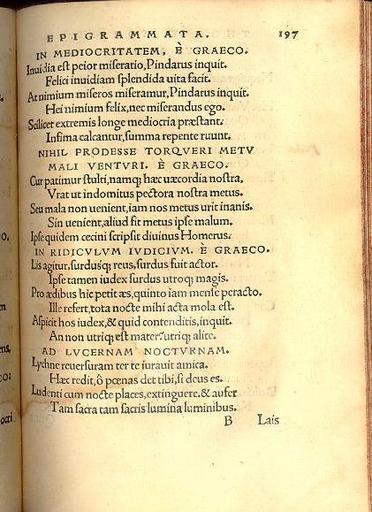 EPIGRAMMATA. 197
IN MEDIOCRITATEM, È GRAECO.
Inuidia est peior miseratio, Pindarus inquit.
Felici inuidiam splendida uita facit.
At nimium miseros miseramur, Pindarus inquit.
Hei nimium felix, nec miserandus ego.
Scilicet extremis longe mediocria præstant.
Infima calcantur, summa repente ruunt.
NIHIL PRODESSE TORQVERI METV
MALI VENTVRI. È GRAECO.
Cur patimur stulti, namq; hæc uæcordia nostra,
Vrat ut indomitus pectora nostra metus.
Seu mala non uenient, iam nos metus urit inanis.
Sin uenient, aliud fit metus ipse malum.
Ipse quidem cecini scripsit diuinus Homerus.
IN RIDICVLVM IVDICIVM. È GRAECO.
Lis agitur, surdusq; reus, surdus fuit actor.
Ipse tamen iudex surdus utroq; magis.
Pro ædibus hic petit æs, quinto iam mense peracto.
Ille refert, tota nocte mihi acta mola est.
Aspicit hos iudex, & quid contenditis, inquit.
An non utriq; est mater? utriq; alite.
AD LVCERNAM NOCTVRNAM.
Lychne reuersuram ter te iurauit amica.
Hæc redit, ô pœnas det tibi, si deus es.
Ludenti cum nocte places, extinguere, & aufer
Tam sacra tam sacris lumina luminibus.
B Lais